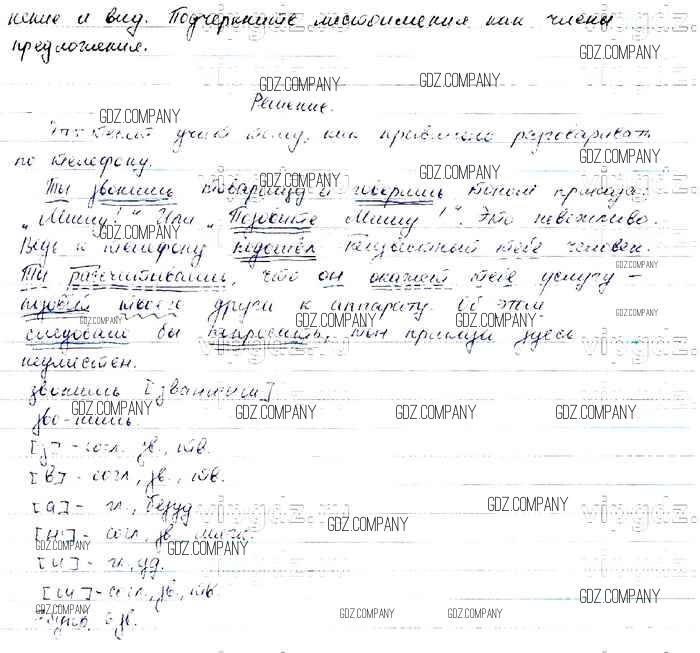 нение и вид. Подчеркните местоимения как члены
предложения.
Решение.
учит тому, как правильно разговаривать
по телефону.
Ты звонишь товарищу и говоришь тоном приказа:
"Мишу!" Или "Позовите Мишу!". Это невежливо.
Ведь к телефону подошёл неизвестный тебе человек.
Ты рассчитываешь, что он окажет тебе услугу –
позовёт твоего друга к аппарату. Об этом
следовало бы попросить, тон приказа здесь
неуместен.
звонишь [званиш]
зво-нишь.
[з] - согл., зв., тв.
[в] - согл., зв., тв.
[а] - гл., безуд
[н'] - согл., зв., мягк.
[и] - гл., уд.
[ш] - согл., тв.
6 зв.
GDZ.COMPANY
vingdz.ru